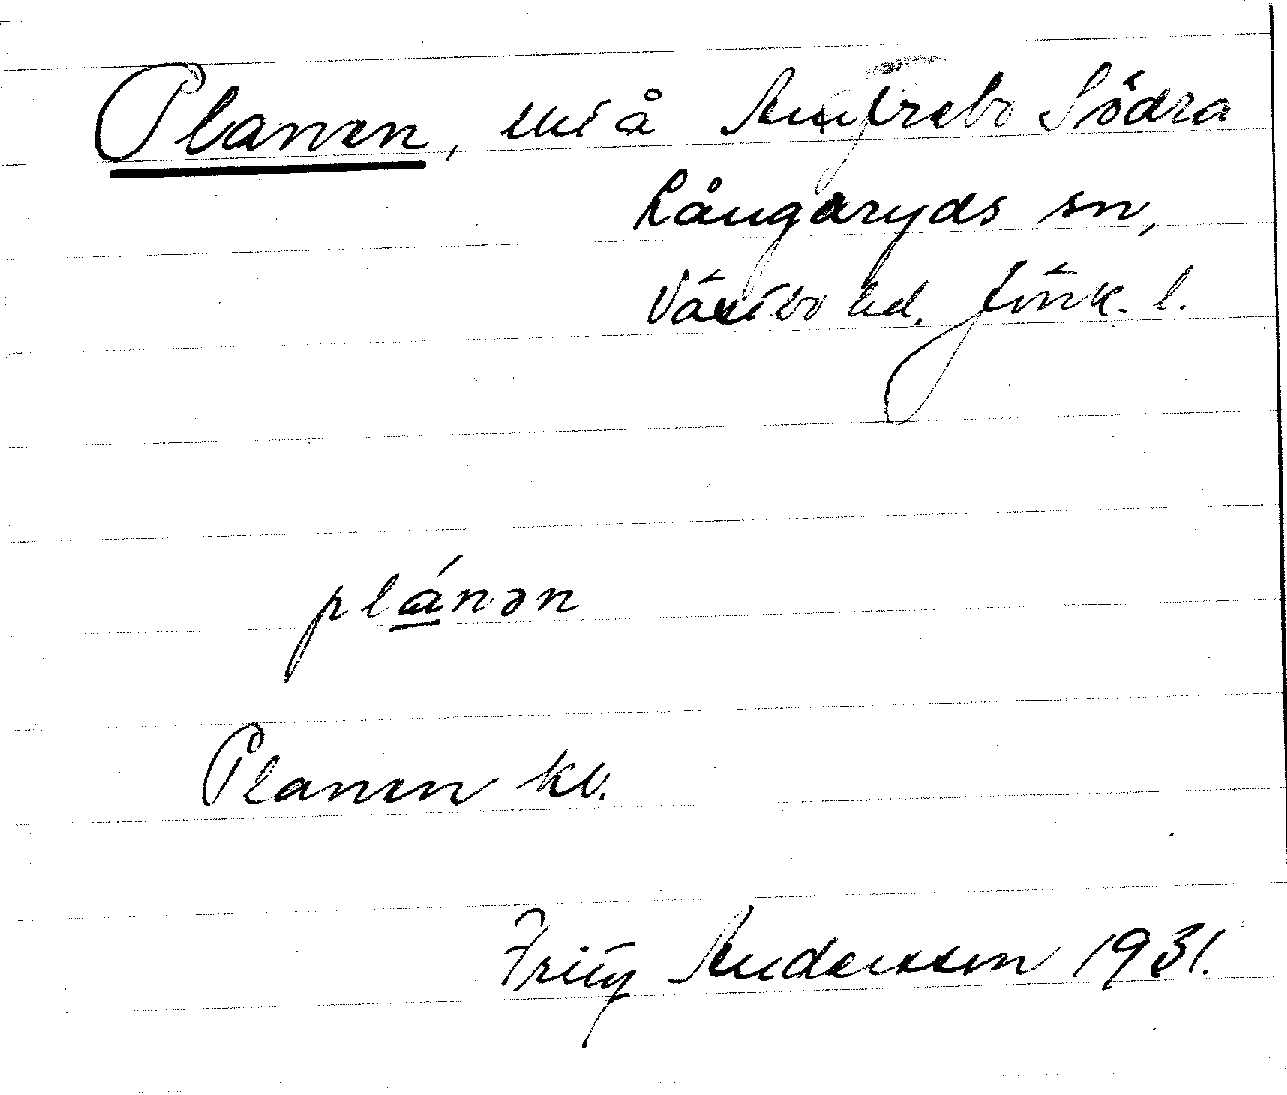 Planen, uti å Amfrebo Södra
Långaryds sn,
Västbo hd. Jönk. l.
plánən
Planen kv.
Fritz Andersson 1931.